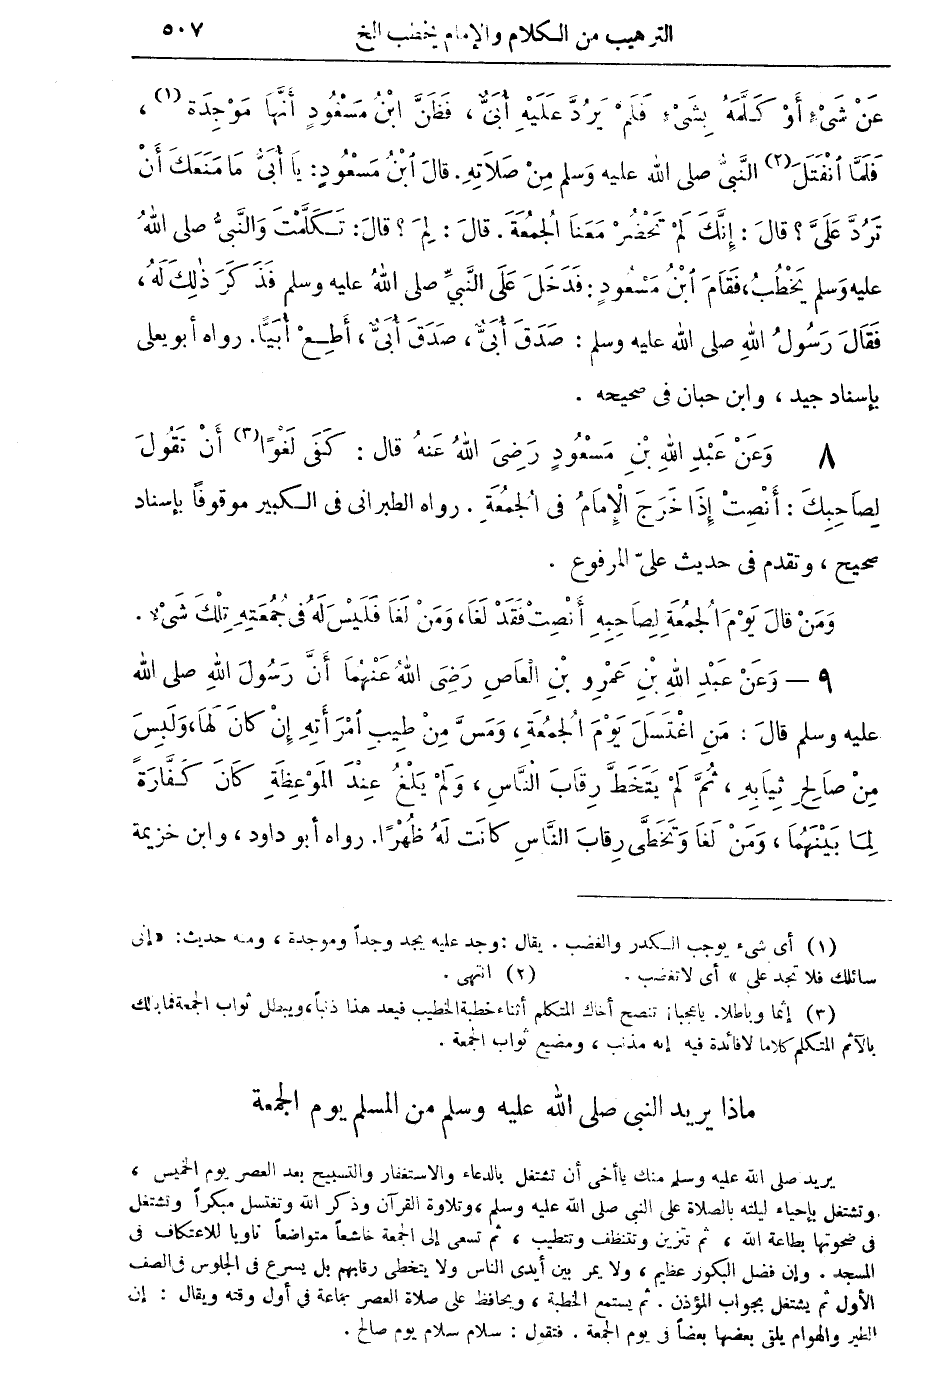 الترهيب من الكلام والإمام يخطب الخ ٥٠٧
عَنْ شَىْءٍ أَوْ كَلَّمَهُ بِشَىْءٍ فَلَمْ يَرُدَّ عَلَيْهِ أُبَىٌّ ، فَظَنَّ ابْنُ مَسْعُودٍ أَنَّهَا مَوْجِدَة (١) ،
فَلَمَّا ٱنْفَتَلَ (٢) النَّبِىُّ صلى الله عليه وَسلم مِنْ صَلَاتِهِ. قالَ ٱبْنُ مَسْعُودٍ: يَا أُبَىُّ مَا مَنَعَكَ أَنْ
تَرُدَّ عَلَىَّ ؟ قالَ : إِنَّكَ لَمْ تَحْضُرْ مَعَنَا الْجمُعَةَ . قالَ : لِمَ ؟ قالَ: تَكَلَّمْتَ وَالنَّبِىُّ صلى اللهُ
عليه وَسلم يَخْطُبُ، فَقَامَ ٱبْنُ مَسْعُودٍ : فَدَخَلَ عَلَى النَّبِىِّ صلى اللهُ عليه وسلم فَذَكَرَ ذٰلِكَ لَهُ ،
فَقَالَ رَسُولُ اللهِ صلى الله عليه وسلم : صَدَقَ أُبَىٌّ ، صَدَقَ أُبَىٌّ ، أَطِعْ أُبَيًّا. رواه أبو يعلى
بإسناد جيد ، وابن حبان فى صحيحه .
٨ وَعَنْ عَبْدِ اللهِ بْنِ مَسْعُودٍ رَضِىَ اللهُ عَنهُ قال : كَفَى لَغْوًا (٣) أَنْ تَقُولَ
لِصَاحِبِكَ : أَنْصِتْ إِذَا خَرَجَ الْإِمَامُ فى الْجمُعَةِ . رواه الطبرانى فى الكبير موقوفاً بإسناد
صحيح ، وتقدم فى حديث علىّ المرفوع .
وَمَنْ قالَ يَوْمَ الْجمُعَةِ لِصَاحِبِهِ أَنْصِتْ فَقَدْ لَغَا، وَمَنْ لَغَا فَلَيْسَ لَهُ فى جُمُعَتِهِ تِلْكَ شَىْءٌ .
٩ — وَعَنْ عَبْدِ اللهِ بْنِ عَمْرِو بْنِ الْعَاصِ رَضِىَ اللهُ عَنْهُمَا أَنَّ رَسُولَ اللهِ صلى الله
عليه وسلم قالَ : مَنِ اغْتَسَلَ يَوْمَ الْجمُعَةِ، وَمَسَّ مِنْ طِيبِ ٱمْرَأَتِهِ إِنْ كانَ لَهَا، وَلَبِسَ
مِنْ صَالِحِ ثِيَابِهِ ، ثُمَّ لَمْ يَتَخَطَّ رِقَابَ النَّاسِ ، وَلَمْ يَلْغُ عِنْدَ المَوْعِظَةِ كَانَ كَفَّارَةً
لِمَا بَيْنَهُمَا ، وَمَنْ لَغَا وَتَخَطَّى رِقابَ النَّاسِ كانَت لَهُ ظُهْرًا. رواه أبو داود ، وابن خزيمة
(١) أى شىء يوجب الكدر والغضب . يقال : وجد عليه يجد وجداً وموجدة ، ومنه حديث: « إنى
سائلك فلا تجد على » أى لاتغضب . (٢) انتهى .
(٣) إثما وباطلا. ياعجبا! تنصح أخاك المتكلم أثناء خطبة الخطيب فيعد هذا ذنباً، ويبطل ثواب الجمعة فمابالك
بالآثم المتكلم كلاما لافائدة فيه إنه مذنب ، ومضيع ثواب الجمعة .
ماذا يريد النبى صلى الله عليه وسلم من المسلم يوم الجمعة
يريد صلى الله عليه وسلم منك ياأخى أن تشتغل بالدعاء والاستغفار والتسبيح بعد العصر يوم الخميس ،
وتشتغل بإحياء ليلته بالصلاة على النبى صلى الله عليه وسلم ، وتلاوة القرآن وذكر الله وتغتسل مبكراً وتشتغل
فى ضحوتها بطاعة الله ، ثم تتزين وتتنظف وتتطيب ، ثم تسعى إلى الجمعة خاشعاً متواضعاً ناويا للاعتكاف فى
المسجد . وإن فضل البكور عظيم ، ولا يمر بين أيدى الناس ولا يتخطى رقابهم بل يسرع فى الجلوس فى الصف
الأول ثم يشتغل بجواب المؤذن . ثم يستمع الخطبة ، ويحافظ على صلاة العصر جماعة فى أول وقته ويقال : إن
الطير والهوام يلقى بعضها بعضاً فى يوم الجمعة . فتقول : سلام سلام يوم صالح .